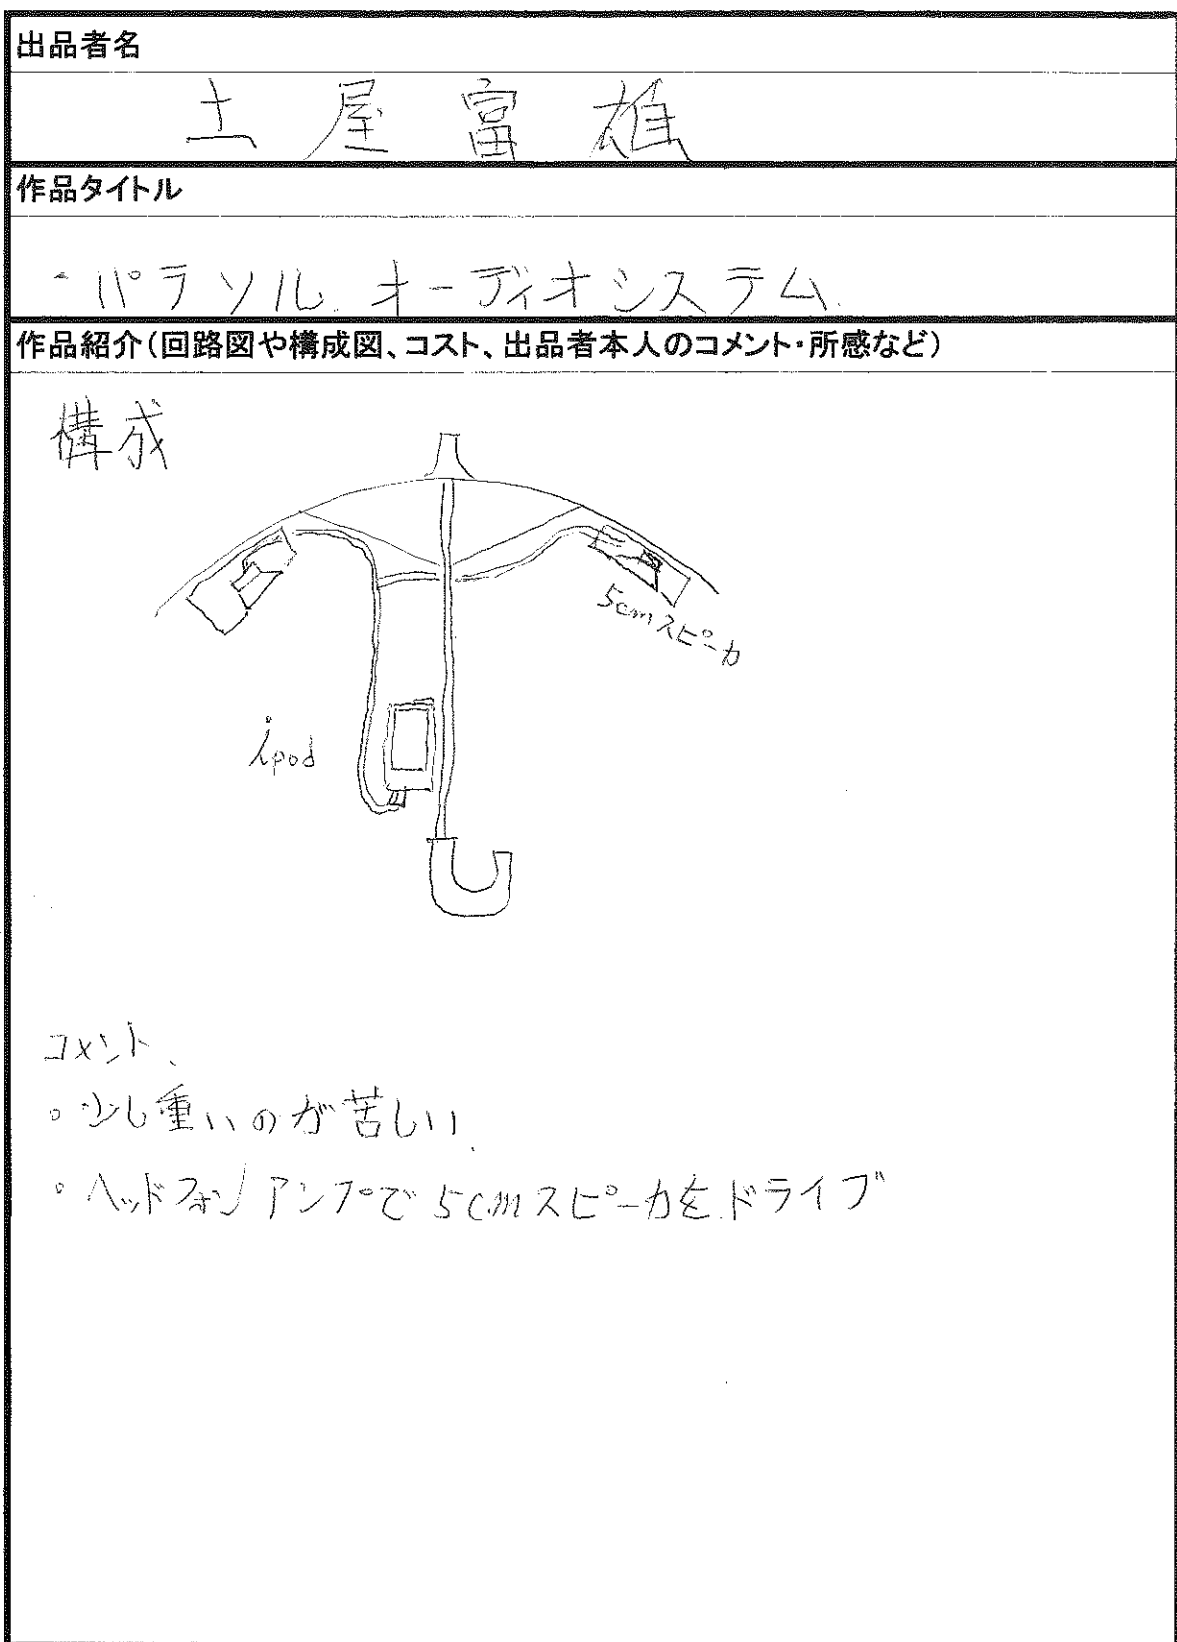 出品者名
土屋富雄
作品タイトル
・パラソル.オーディオシステム.
作品紹介(回路図や構成図、コスト、出品者本人のコメント・所感など)
構成
5cmスピーカ
ipod
コメント、
。少し重いのが苦しい.
。ヘッドフォンアンプで5cmスピーカをドライブ